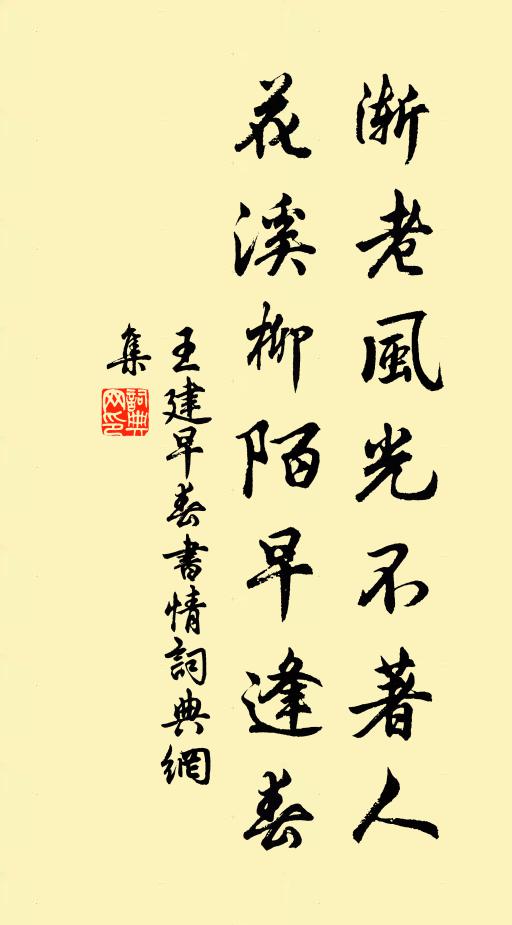 漸老風光不著人
花溪柳陌早逢春
王建早春書情詞典網
集
詞典
网印